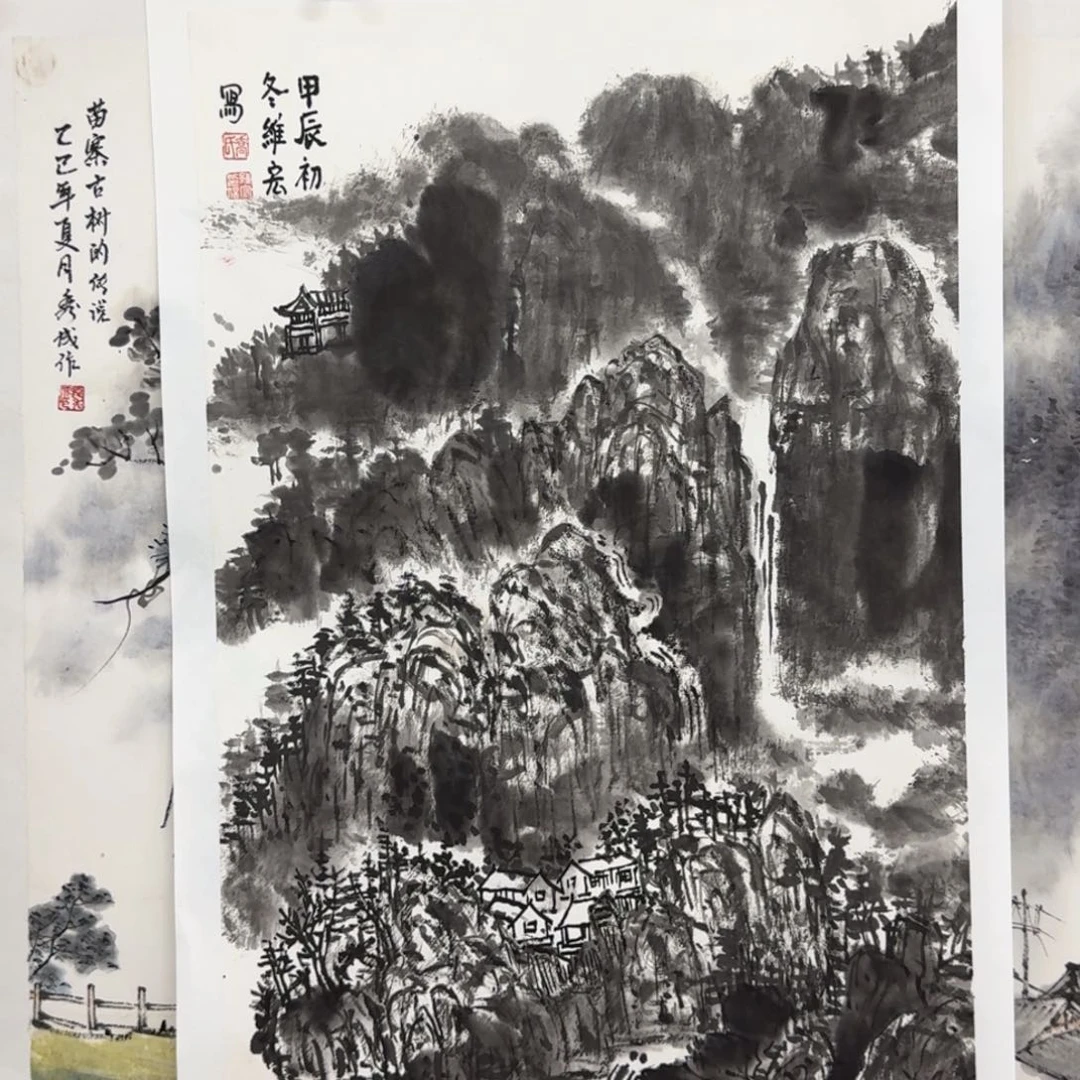 甲辰初
冬維宏
寫
苗寨古树的传说
乙巳年夏月秀成作